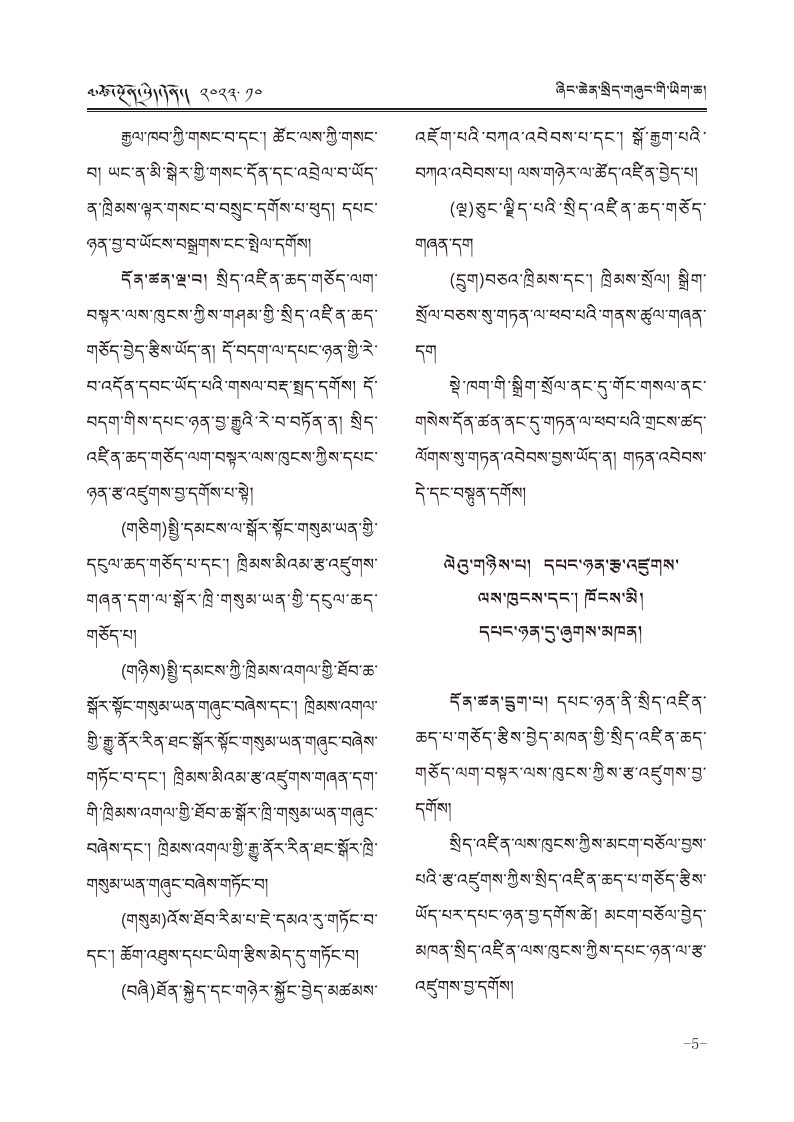 ༢༠༢༣·༡༠
ཞིང་ཆེན་སྲིད་གཞུང་གི་ཡིག་ཆ།
རྒྱལ་ཁབ་ཀྱི་གསང་བ་དང་། ཚོང་ལས་ཀྱི་གསང་
བ། ཡང་ན་མི་སྒེར་གྱི་གསང་དོན་དང་འབྲེལ་བ་ཡོད་
ན་ཁྲིམས་ལྟར་གསང་བ་བསྲུང་དགོས་པ་ཕུད། དཔང་
ཉན་བྱ་བ་ཡོངས་བསྒྲགས་ངང་སྤེལ་དགོས།
དོན་ཚན་ལྔ་བ། སྲིད་འཛིན་ཆད་གཅོད་ལག་
བསྟར་ལས་ཁུངས་ཀྱིས་གཤམ་གྱི་སྲིད་འཛིན་ཆད་
གཅོད་བྱེད་རྩིས་ཡོད་ན། དོ་བདག་ལ་དཔང་ཉན་གྱི་རེ་
བ་འདོན་དབང་ཡོད་པའི་གསལ་བརྡ་སྤྲད་དགོས། དོ་
བདག་གིས་དཔང་ཉན་བྱ་རྒྱུའི་རེ་བ་བཏོན་ན། སྲིད་
འཛིན་ཆད་གཅོད་ལག་བསྟར་ལས་ཁུངས་ཀྱིས་དཔང་
ཉན་རྩ་འཛུགས་བྱ་དགོས་པ་སྟེ།
(གཅིག)སྤྱི་དམངས་ལ་སྒོར་སྟོང་གསུམ་ཡན་གྱི་
དངུལ་ཆད་གཅོད་པ་དང་། ཁྲིམས་མིའམ་རྩ་འཛུགས་
གཞན་དག་ལ་སྒོར་ཁྲི་གསུམ་ཡན་གྱི་དངུལ་ཆད་
གཅོད་པ།
(གཉིས)སྤྱི་དམངས་ཀྱི་ཁྲིམས་འགལ་གྱི་ཐོབ་ཆ་
སྒོར་སྟོང་གསུམ་ཡན་གཞུང་བཞེས་དང་། ཁྲིམས་འགལ་
གྱི་རྒྱུ་ནོར་རིན་ཐང་སྒོར་སྟོང་གསུམ་ཡན་གཞུང་བཞེས་
གཏོང་བ་དང་། ཁྲིམས་མིའམ་རྩ་འཛུགས་གཞན་དག་
གི་ཁྲིམས་འགལ་གྱི་ཐོབ་ཆ་སྒོར་ཁྲི་གསུམ་ཡན་གཞུང་
བཞེས་དང་། ཁྲིམས་འགལ་གྱི་རྒྱུ་ནོར་རིན་ཐང་སྒོར་ཁྲི་
གསུམ་ཡན་གཞུང་བཞེས་གཏོང་བ།
(གསུམ)འོས་ཐོབ་རིམ་པ་ཇེ་དམའ་རུ་གཏོང་བ་
དང་། ཆོག་འཐུས་དཔང་ཡིག་རྩིས་མེད་དུ་གཏོང་བ།
(བཞི)ཐོན་སྐྱེད་དང་གཉེར་སྐྱོང་བྱེད་མཚམས་
འཇོག་པའི་བཀའ་འབེབས་པ་དང་། སྒོ་རྒྱག་པའི་
བཀའ་འབེབས་པ། ལས་གཉེར་ལ་ཚོད་འཛིན་བྱེད་པ།
(ལྔ)ཅུང་ལྗིད་པའི་སྲིད་འཛིན་ཆད་གཅོད་
གཞན་དག
(དྲུག)བཅའ་ཁྲིམས་དང་། ཁྲིམས་སྲོལ། སྒྲིག་
སྲོལ་བཅས་སུ་གཏན་ལ་ཕབ་པའི་གནས་ཚུལ་གཞན་
དག
སྡེ་ཁག་གི་སྒྲིག་སྲོལ་ནང་དུ་གོང་གསལ་ནང་
གསེས་དོན་ཚན་ནང་དུ་གཏན་ལ་ཕབ་པའི་གྲངས་ཚད་
ལོགས་སུ་གཏན་འབེབས་བྱས་ཡོད་ན། གཏན་འབེབས་
དེ་དང་བསྟུན་དགོས།
ལེའུ་གཉིས་པ། དཔང་ཉན་རྩ་འཛུགས་
ལས་ཁུངས་དང་། ཁོངས་མི།
དཔང་ཉན་དུ་ཞུགས་མཁན།
དོན་ཚན་དྲུག་པ། དཔང་ཉན་ནི་སྲིད་འཛིན་
ཆད་པ་གཅོད་རྩིས་བྱེད་མཁན་གྱི་སྲིད་འཛིན་ཆད་
གཅོད་ལག་བསྟར་ལས་ཁུངས་ཀྱིས་རྩ་འཛུགས་བྱ་
དགོས།
སྲིད་འཛིན་ལས་ཁུངས་ཀྱིས་མངག་བཅོལ་བྱས་
པའི་རྩ་འཛུགས་ཀྱིས་སྲིད་འཛིན་ཆད་པ་གཅོད་རྩིས་
ཡོད་པར་དཔང་ཉན་བྱ་དགོས་ཚེ། མངག་བཅོལ་བྱེད་
མཁན་སྲིད་འཛིན་ལས་ཁུངས་ཀྱིས་དཔང་ཉན་ལ་རྩ་
འཛུགས་བྱ་དགོས།
-5-